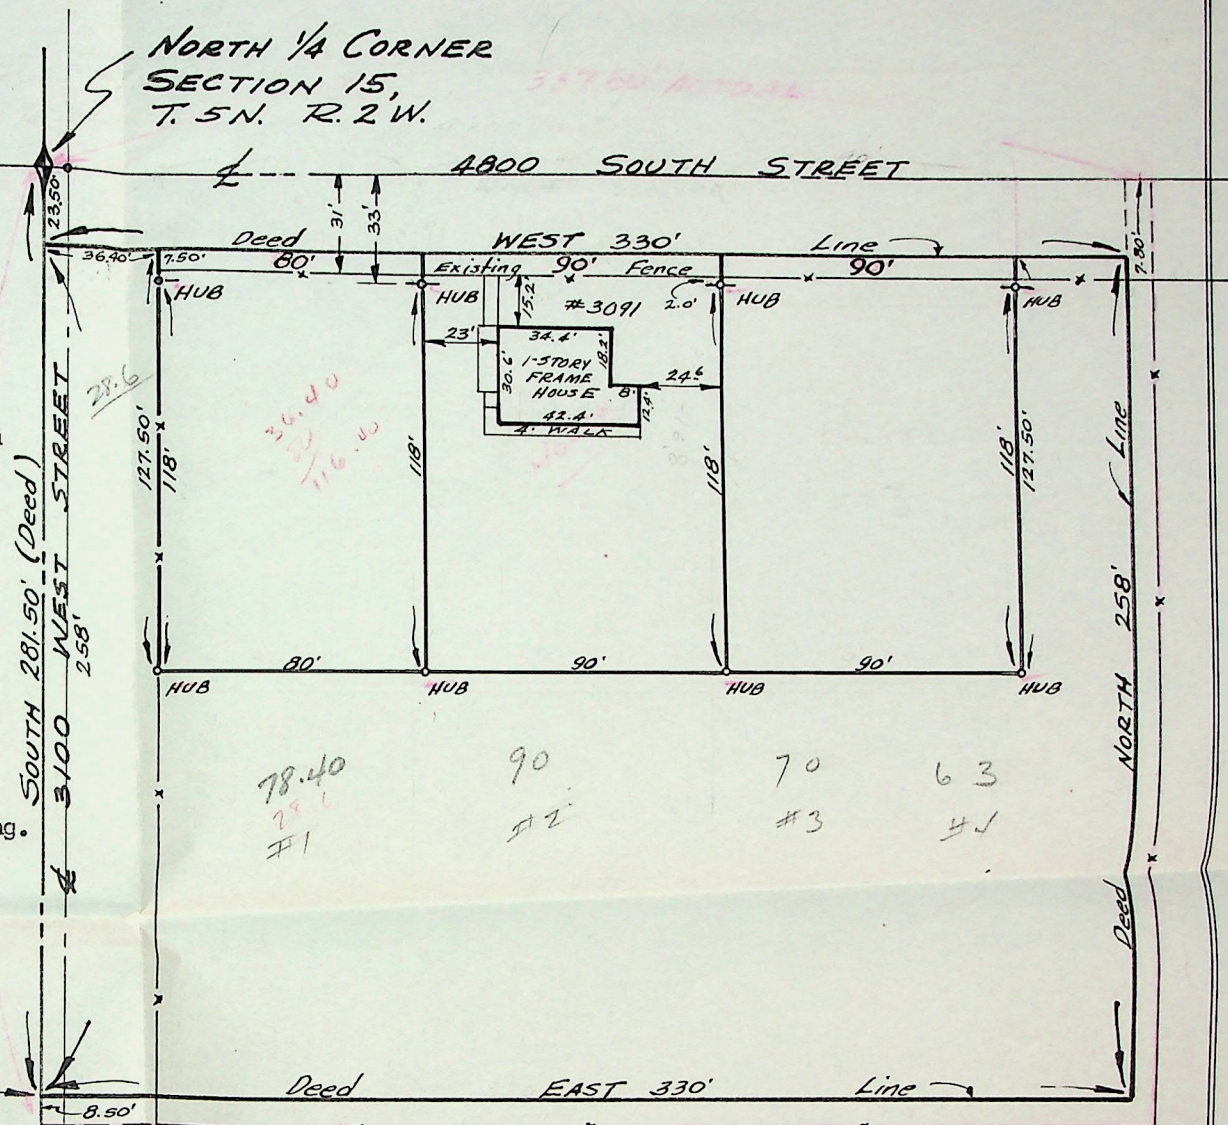 NORTH 1/4 CORNER
SECTION 15,
T. 5N. R. 2 W.
337.80 ACTUAL
℄ 4800 SOUTH STREET
23.50'
31'
33'
7.80'
Deed WEST 330' Line
36.40' 7.50' 80' Existing 90' Fence 90'
HUB
HUB
HUB
HUB
15.2'
#3091
2.0'
23'
34.4'
18.2'
30.6'
1-STORY
FRAME
HOUSE
8'
24.6
12.4'
42.4'
4' WALK
28.6
36.40
80
116.40
127.50'
118'
118'
118'
118'
127.50'
SOUTH 281.50' (Deed)
℄ 3100 WEST STREET
258'
Deed NORTH 258' Line
80' 90' 90'
HUB HUB HUB HUB
78.40 90 70 63
28.6
#1 #2 #3 #4
ng.
Deed EAST 330' Line
8.50'